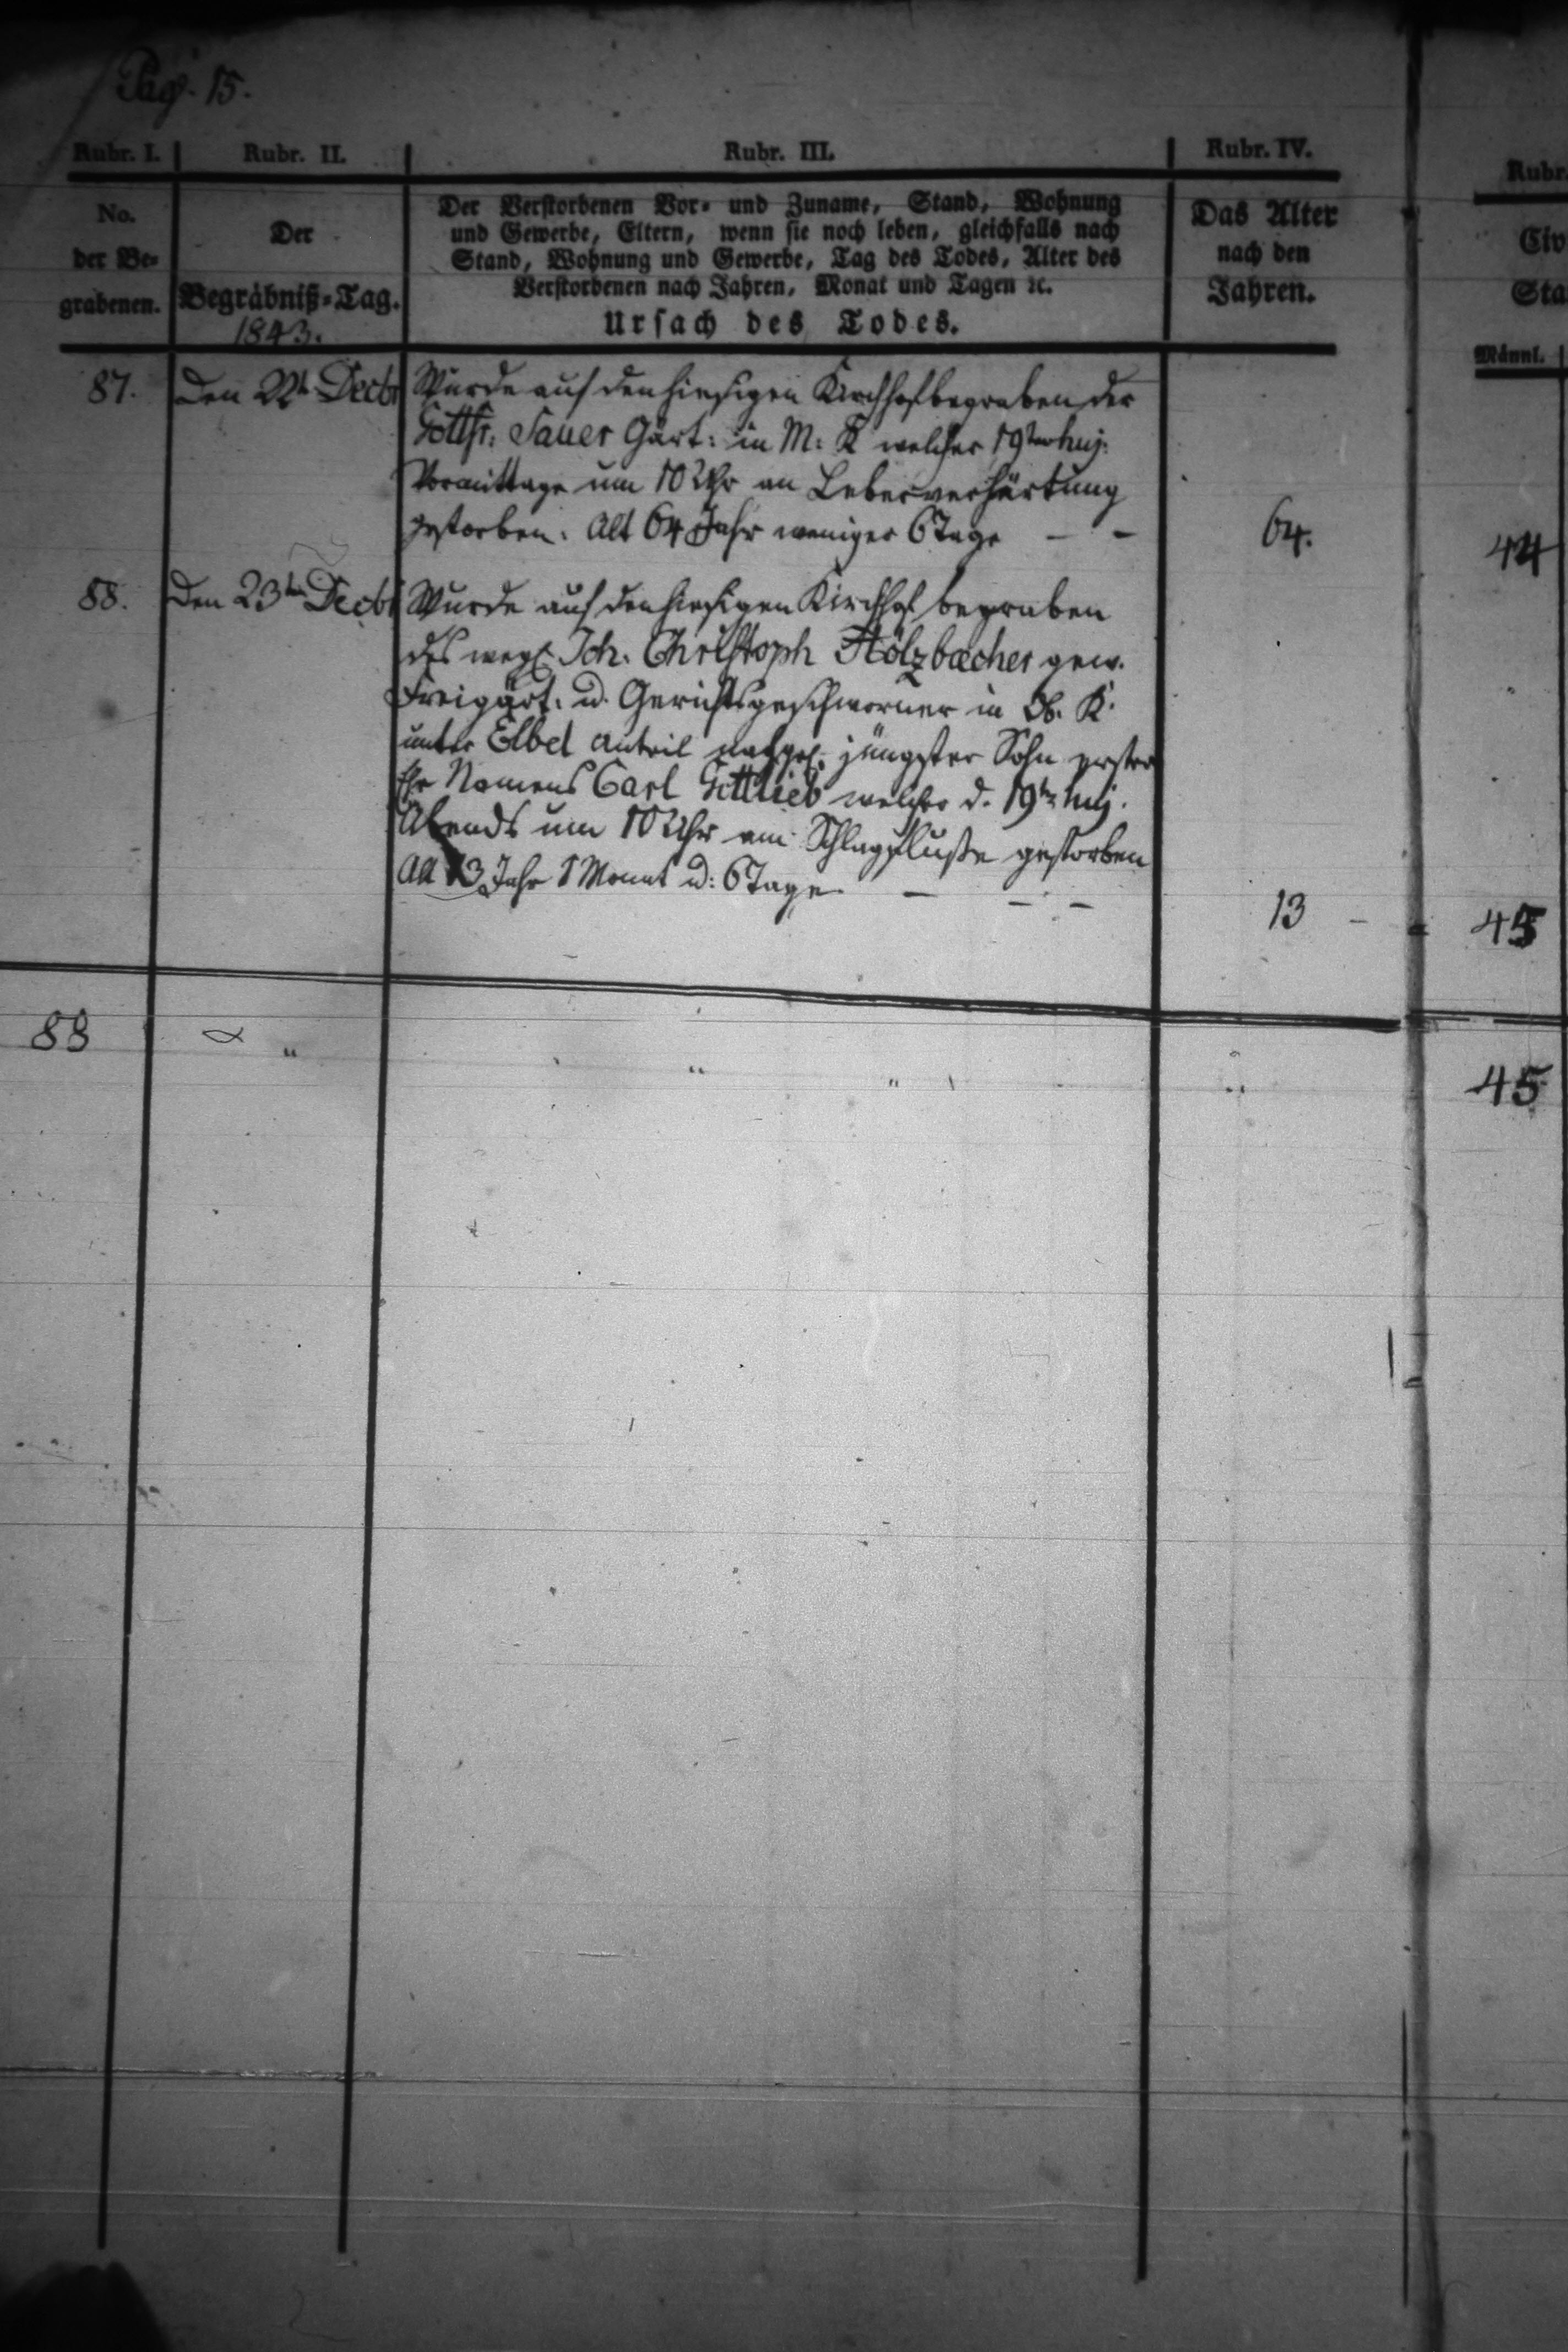 Pag. 15.
Rubr. I. Rubr. II. Rubr. III. Rubr. IV. Rubr.
No. der Be- grabenen.
Der Begräbniß-Tag. 1843.
Der Verstorbenen Vor- und Zuname, Stand, Wohnung
und Gewerbe, Eltern, wenn sie noch leben, gleichfalls nach
Stand, Wohnung und Gewerbe, Tag des Todes, Alter des
Verstorbenen nach Jahren, Monat und Tagen ꝛc.
Ursach des Todes.
Das Alter
nach den
Jahren.
Civ
Sta
Männl.
87. Den 22t Decbr Wurde auf den hiesigen Kirchhof begraben der
Gottfr. Sauer Gärt: in M: K welcher 19ten huj:
Vormittags um 10 Uhr an Leberverhärtung
gestorben. Alt 64 Jahr weniger 6 Tage – – 64. 44
88. Den 23ten Decbr Wurde auf den hiesigen Kirchhof begraben
des weyl. Joh. Christoph Hölzbecher gew.
Freigärt. u. Gerichtsgeschworner in Ob. K.
unter Elbel Anteil nachgel. jüngster Sohn erster
Ehe Namens Carl Gottlieb welcher d. 19ten huj.
Abends um 10 Uhr am Schlagfluße gestorben
Alt 13 Jahr 1 Monat u: 6 Tage. – – – 13 – 45
88 " " " " 45